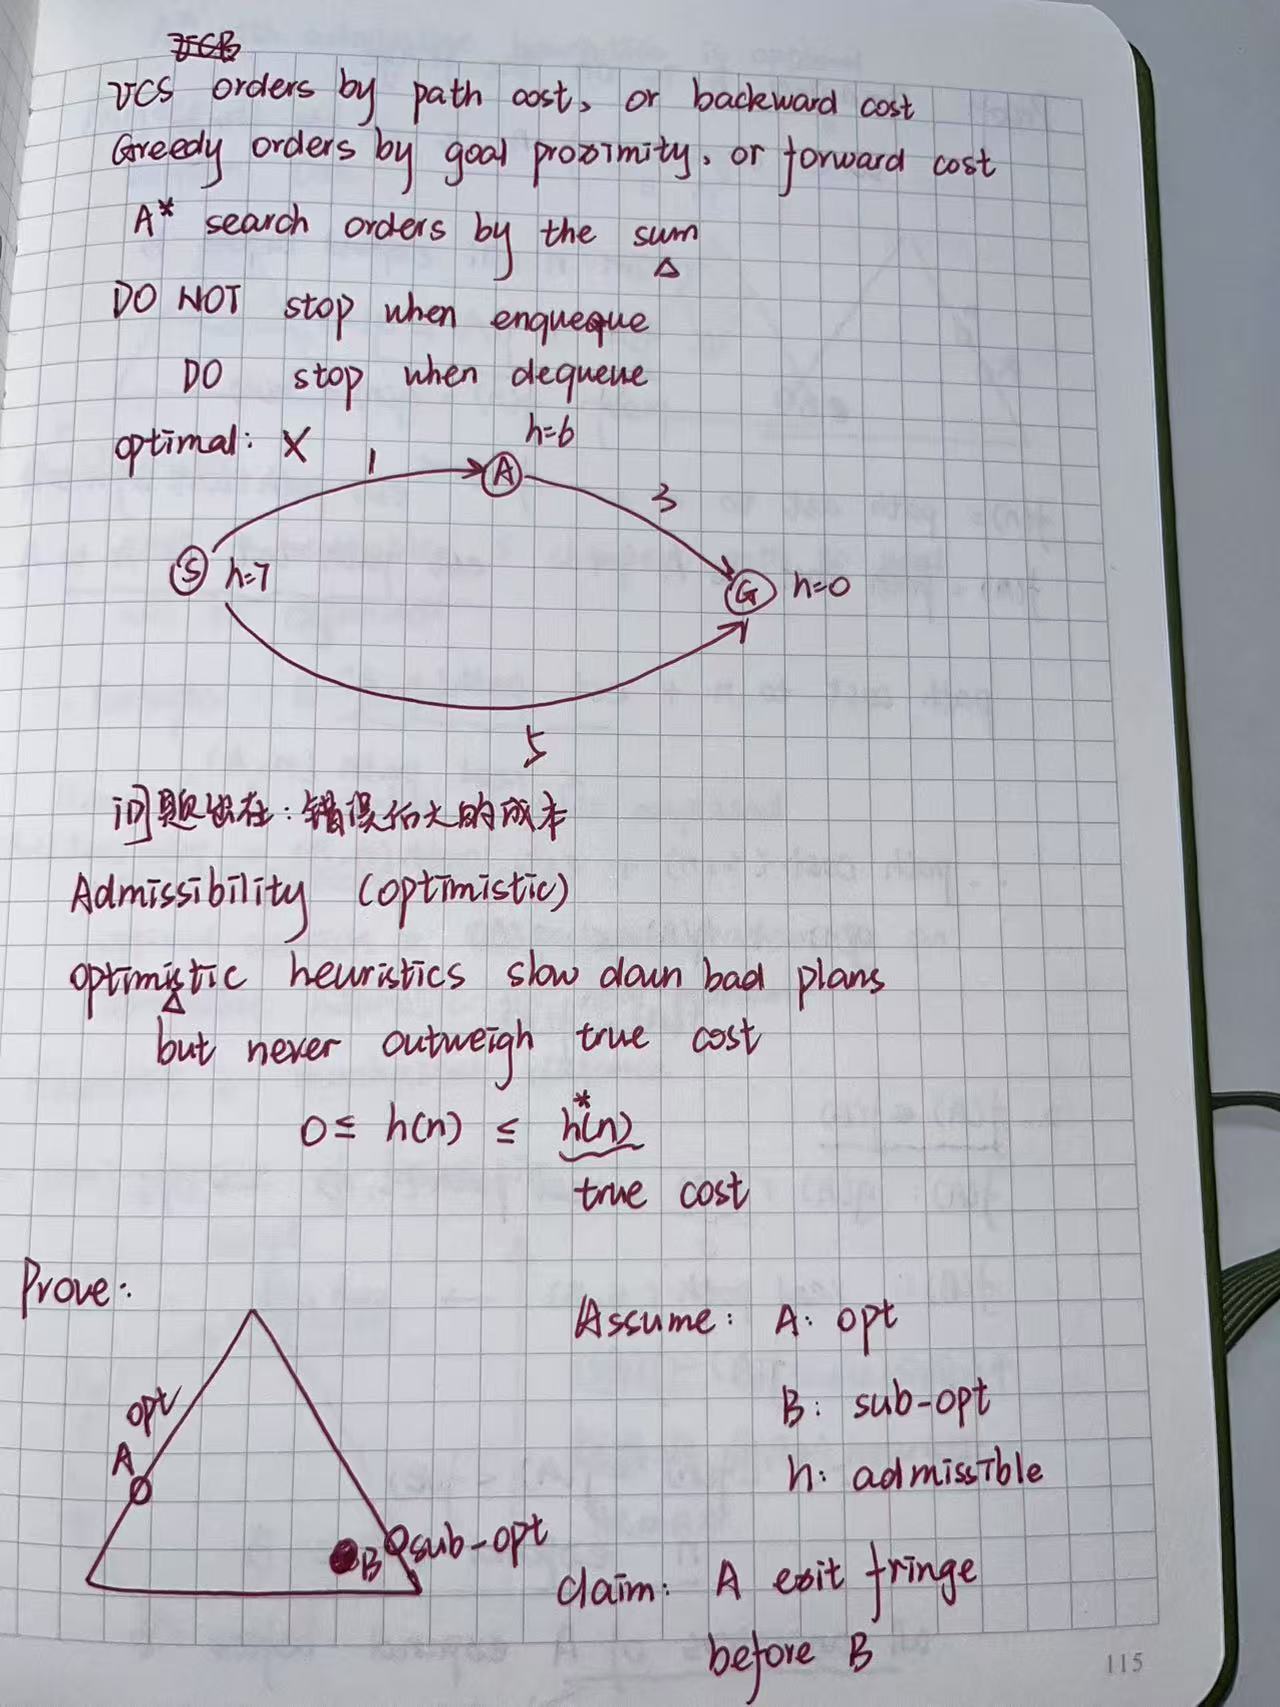 UCS orders by path cost, or backward cost
Greedy orders by goal proximity, or forward cost
A* search orders by the sum
DO NOT stop when enqueque
DO stop when dequeue
optimal: X
h=6
1
A
3
S h=7
G h=0
5
问题出在:错误估大的成本
Admissibility (optimistic)
optimistic heuristics slow down bad plans
but never outweigh true cost
0 ≤ h(n) ≤ h*(n)
true cost
Prove:
Assume: A: opt
opt
B: sub-opt
A
h: admissible
B sub-opt
claim: A exit fringe
before B
115